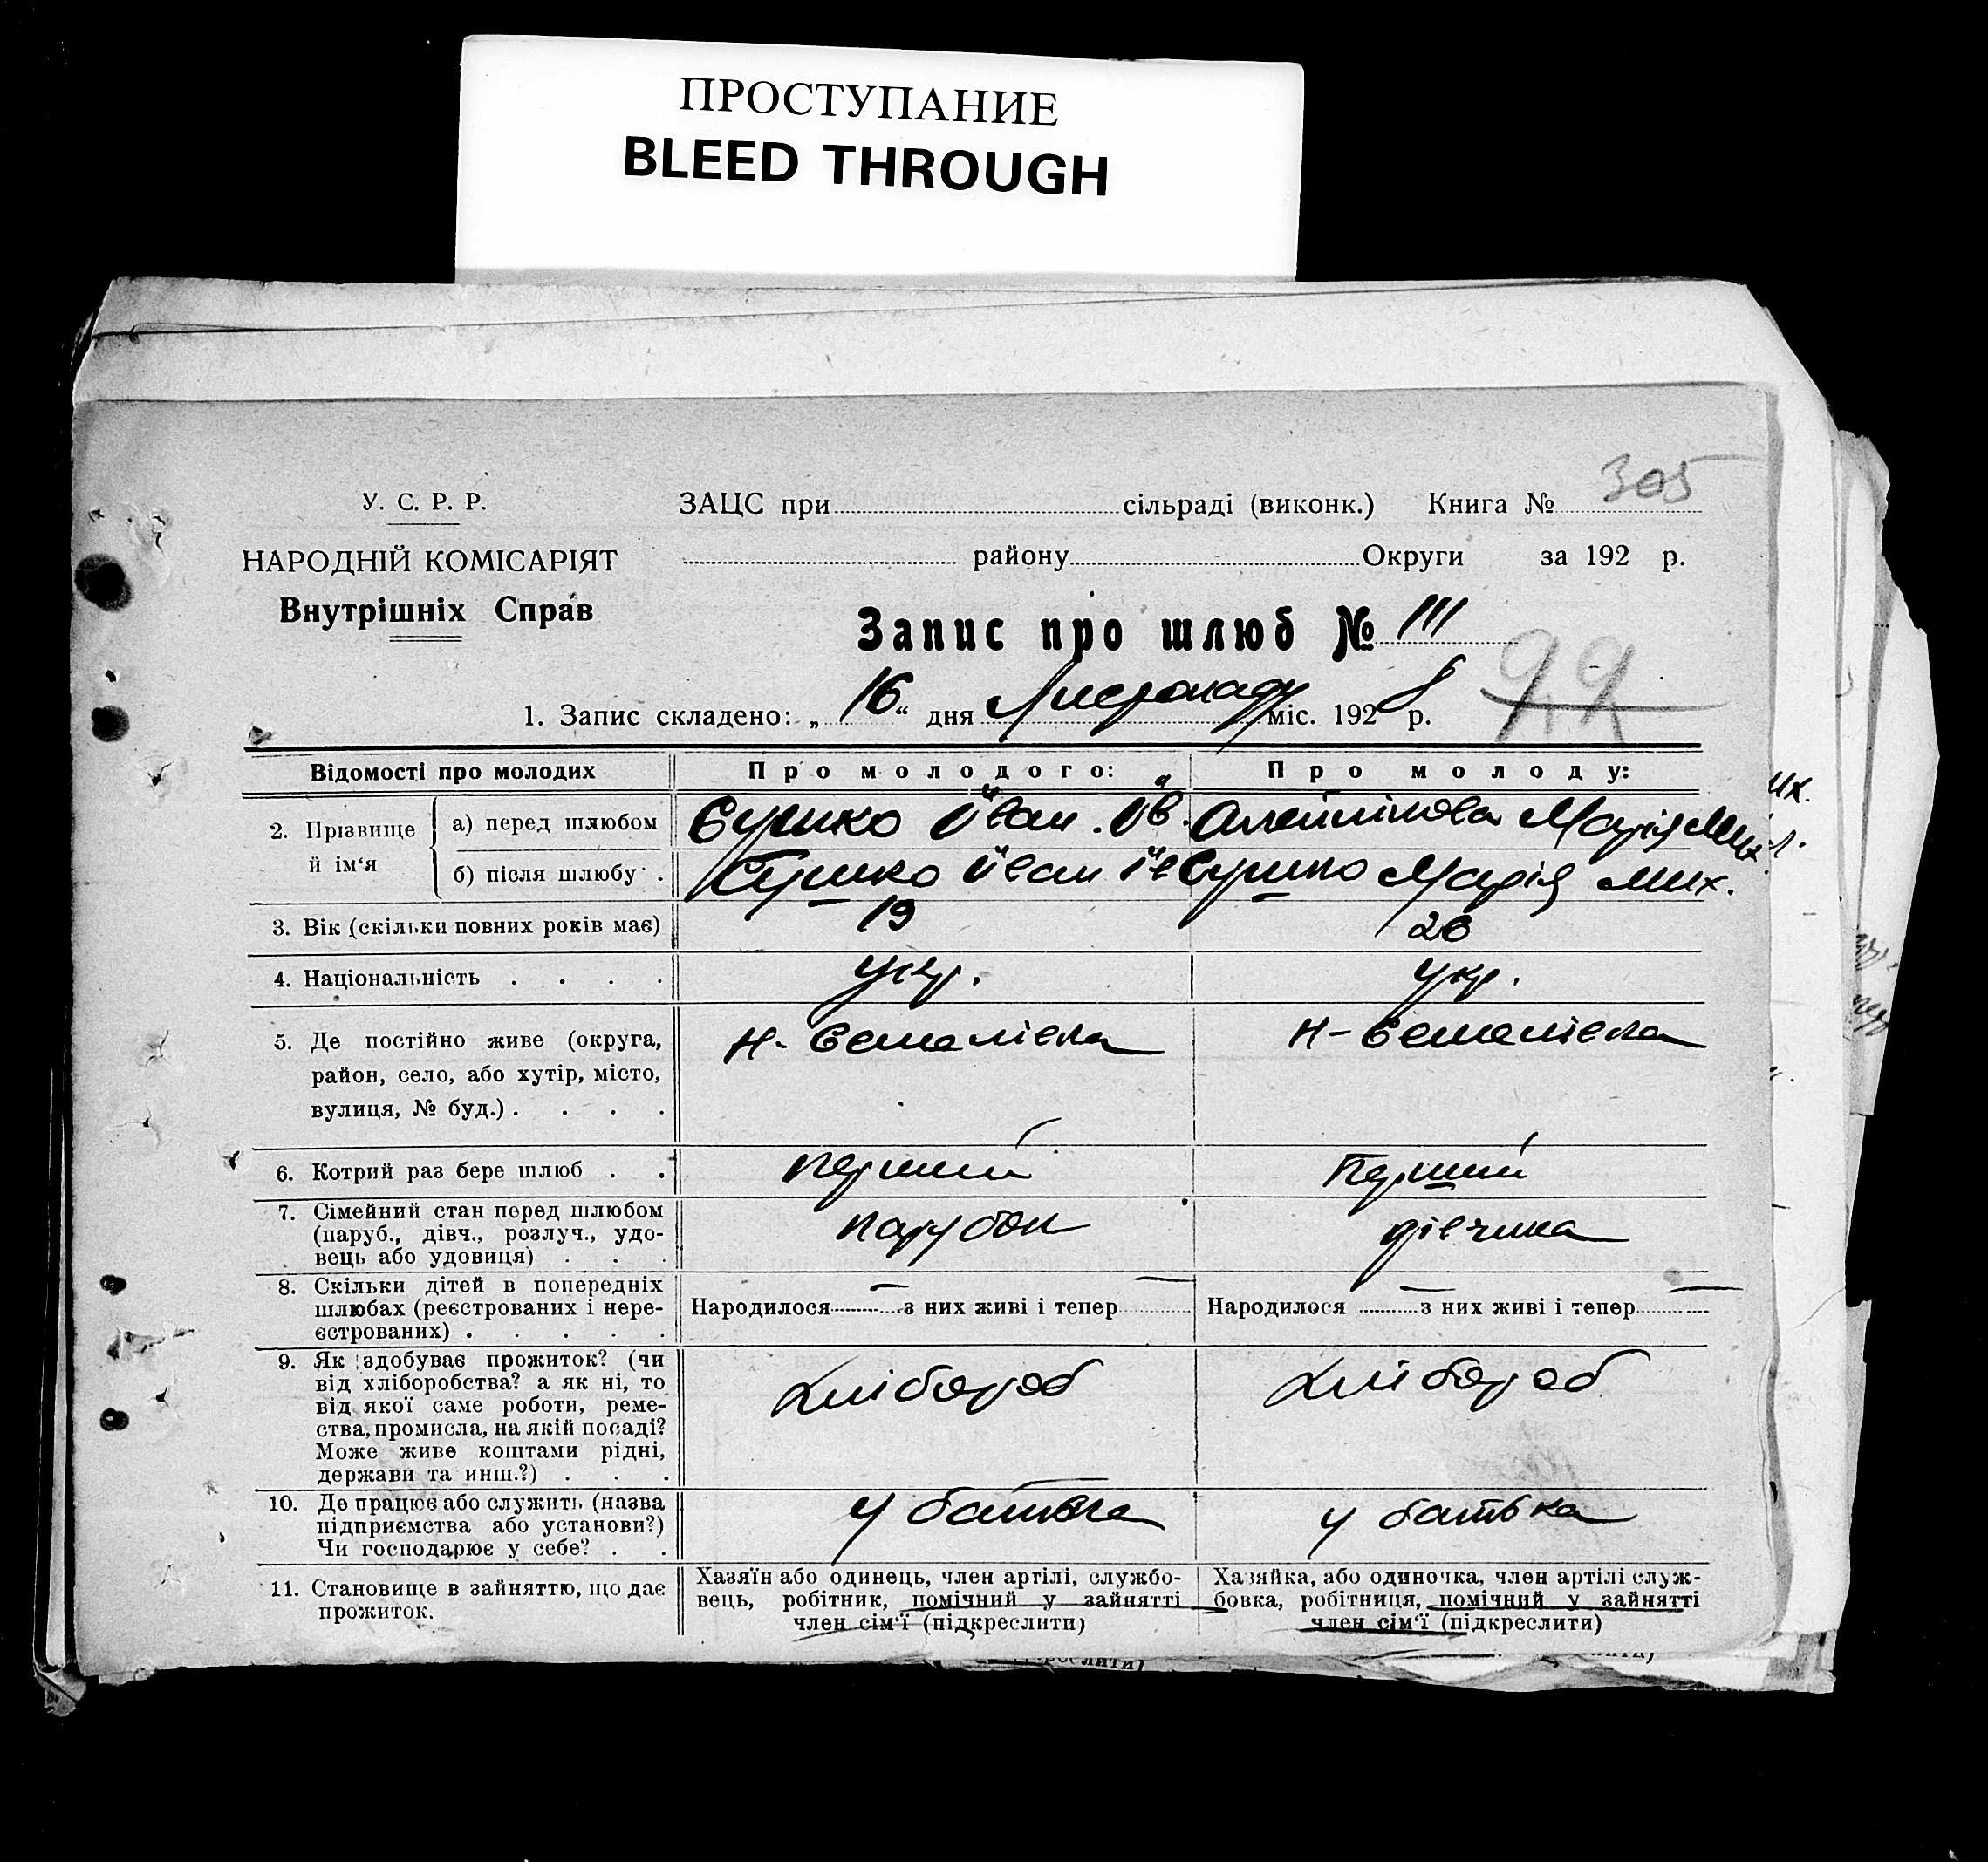 ПРОСТУПАНИЕ
BLEED THROUGH
305
У. С. Р. Р.
ЗАЦС при сільраді (виконк.) Книга №
НАРОДНІЙ КОМІСАРІЯТ
району Округи за 192 р.
Внутрішніх Справ
Запис про шлюб № 111
99
1. Запис складено: „16“ дня Листопаду міс. 1928 р.
Відомості про молодих
Про молодого:
Про молоду:
2. Прізвище й ім‘я
а) перед шлюбом
Сушко Іван Ів.
Олейнікова Марія Мих.
б) після шлюбу .
Сушко Іван Ів
Сушко Марія Мих.
3. Вік (скільки повних років має)
19
20
4. Національність . . . .
Укр.
Укр.
5. Де постійно живе (округа,
район, село, або хутір, місто,
вулиця, № буд.) . . . .
Н-
Н-
6. Котрий раз бере шлюб . .
перший
Перший
7. Сімейний стан перед шлюбом
(паруб., дівч., розлуч., удо-
вець або удовиця) . . .
парубок
дівчина
8. Скільки дітей в попередніх
шлюбах (реєстрованих і нере-
єстрованих) . . . . .
Народилося — з них живі і тепер —
Народилося — з них живі і тепер —
9. Як здобуває прожиток? (чи
від хліборобства? а як ні, то
від якої саме роботи, реме-
ства, промисла, на якій посаді?
Може живе коштами рідні,
держави та инш.?) . . .
Хлібороб
Хлібороб
10. Де працює або служить (назва
підприємства або установи?)
Чи господарює у себе? . .
у батька
у батька
11. Становище в зайняттю, що дає
прожиток.
Хазяїн або одинець, член артілі, службо-
вець, робітник, помічний у зайнятті
член сім‘ї (підкреслити)
Хазяйка, або одиночка, член артілі служ-
бовка, робітниця, помічний у зайнятті
член сім‘ї (підкреслити)